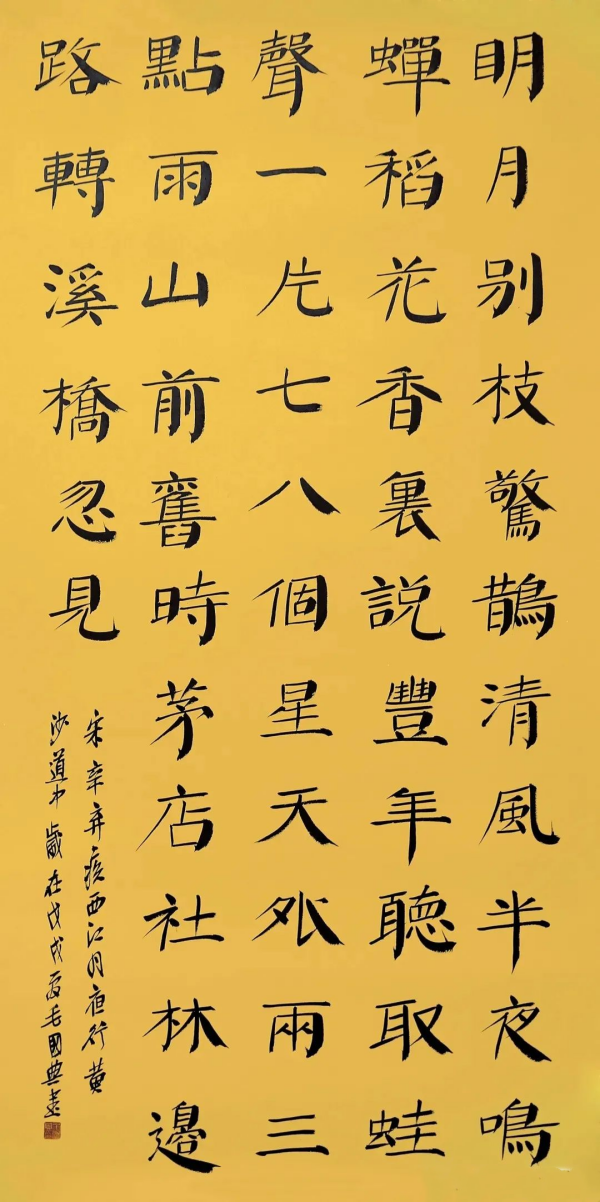 明月别枝驚鵲清風半夜鳴
蟬稻花香裏説豐年聽取蛙
聲一片七八個星天外兩三
點雨山前舊時茅店社林邊
路轉溪橋忽見
宋辛弃疾西江月夜行黄
沙道中歲在戊戌夏毛國典書